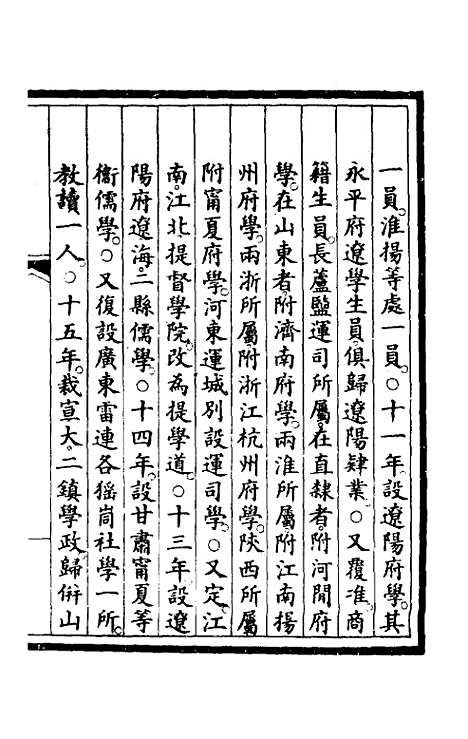 一員。淮揚等處一員。○十一年設遼陽府學。其
永平府遼學生員。俱歸遼陽肄業。○又覆准。商
籍生員。長蘆鹽運司所屬。在直隸者。附河間府
學。在山東者。附濟南府學。兩淮所屬。附江南揚
州府學。兩浙所屬。附浙江杭州府學。陝西所屬
附甯夏府學。河東運城別設運司學。○又定。江
南。江北提督學院。改為提學道。○十三年設遼
陽府遼海。二縣儒學。○十四年。設甘肅甯夏等
衞儒學。○又復設廣東雷連各猺峝社學一所。
教讀一人。○十五年。裁宣大。二鎮學政。歸併山